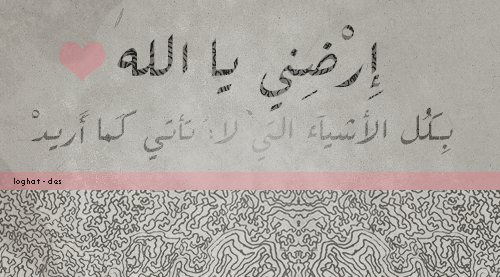 إِرْضِني يا الله
بِكُل الأشيَاء التي لا تأتي كَما أَريدْ
loghat - des